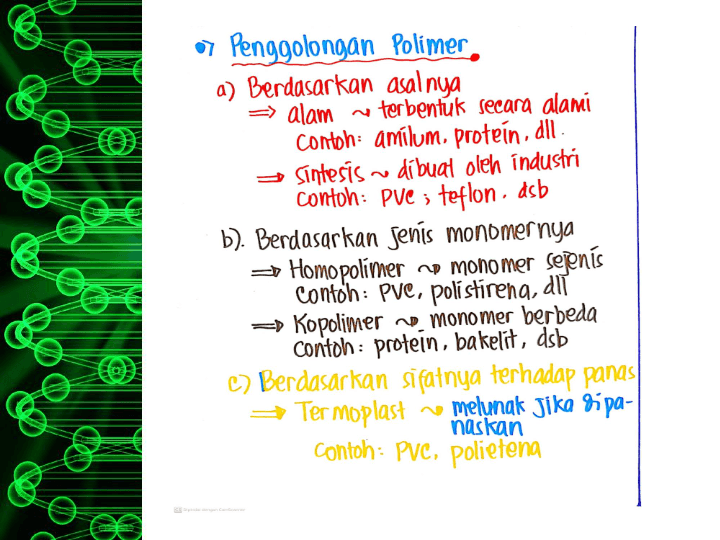 Penggolongan Polimer.
a) Berdasarkan asalnya
=> alam ~ terbentuk secara alami
Contoh: amilum, protein, dll.
=> sintesis ~ dibuat oleh industri
Contoh: PVC ; teflon, dsb
b). Berdasarkan jenis monomernya
=> Homopolimer ~> monomer sejenis
Contoh: PVC, polistirena, dll
=> Kopolimer ~> monomer berbeda
Contoh: protein, bakelit, dsb
c) Berdasarkan sifatnya terhadap panas
=> Termoplast ~> melunak jika dipa-
naskan
Contoh: PVC, polietena